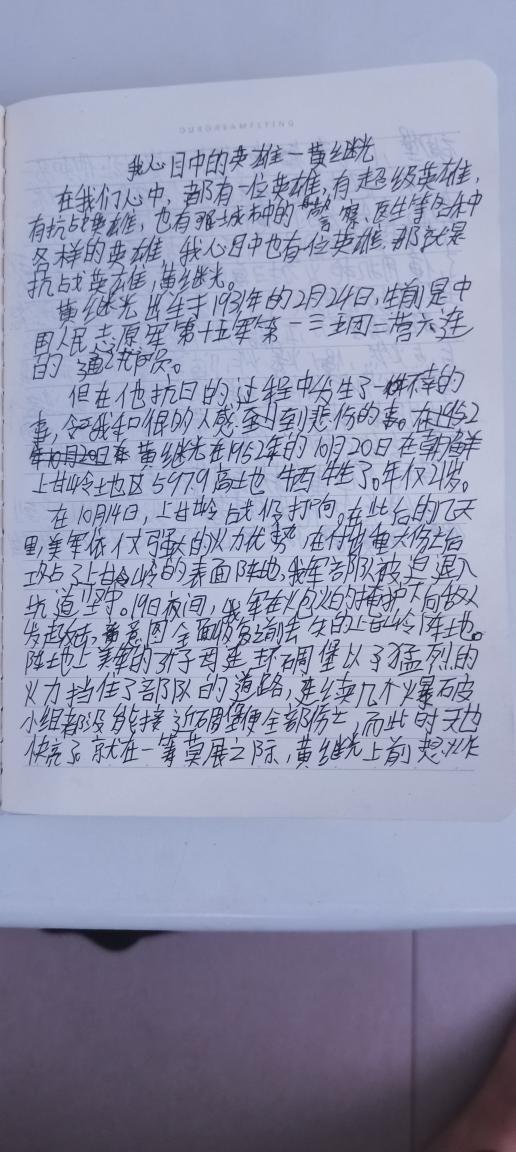 OURDREAMFLYING
我心目中的英雄—黄继光
在我们心中，都有一位英雄，有超级英雄，
有抗战英雄，也有那城市中的"警察、医生等各种
各样的英雄，我心目中也有一位英雄，那就是
抗战英雄，黄继光。
黄继光出生于1931年的2月24日，生前是中
国人民志愿军第十五军第一三五团二营六连
的通讯员。
但在他抗日的过程中发生了一件不幸的
事，令我和很多人感到悲伤的事。在1952
年10月20日 黄继光在1952年的10月20日在朝鲜
上甘岭地区597.9高地牺牲了。年仅21岁。
在10月14日，上甘岭战役打响。在此后的几天
里，美军依仗强大的火力优势，在付出重大伤亡后
攻占了上甘岭的表面阵地，我军部队被迫退入
坑道坚守。19日夜间，我军在火炮火的掩护下向敌人
发起反击，意图全面恢复之前丢失的上甘岭阵地。
阵地上美军的子母连环碉堡以了猛烈的
火力挡住了部队的道路，连续几个爆破
小组都没能接近碉堡便全部伤亡，而此时天也
快亮了。就在一筹莫展之际，黄继光上前